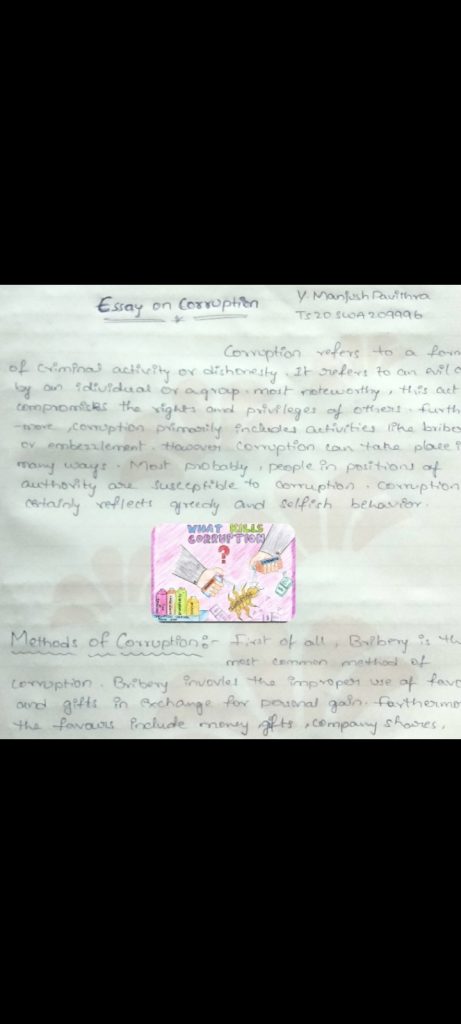 Essay on Corruption
V. Manjush Pavithra
TS20SWA209996
Corruption refers to a form
of Criminal activity or dishonesty. It refers to an evil
by an idividual or a group. most noteworthy, this act
compromises the rights and privileges of others. Furth
-more, corruption primarily includes activities like bribe
or embezzlement. However corruption can take place i
many ways. Most probably, people in positions of
authority are susceptible to corruption. Corruption
certainly reflects greedy and selfish behavior.
WHAT KILLS
CORRUPTION
?
Methods of Corruption:- First of all, Bribery is the
most common method of
corruption. Bribery invovles the improper use of favo
and gifts in exchange for personal gain. Farthermo
the favours include money, gifts, company shares,